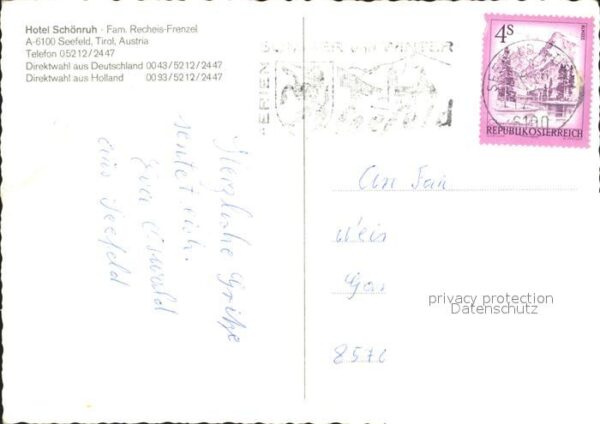 Hotel Schönruh · Fam. Recheis-Frenzel
A-6100 Seefeld, Tirol, Austria
Telefon 05212/2447
Direktwahl aus Deutschland 0043/5212/2447
Direktwahl aus Holland 0093/5212/2447
FERIEN
SOMMER und WINTER
4s
REPUBLIK ÖSTERREICH
6100
Herzliche Grüße
sendet euch
Eva Oswald
aus Seefeld
An Fam
Weis
Gas
857
privacy protection
Datenschutz